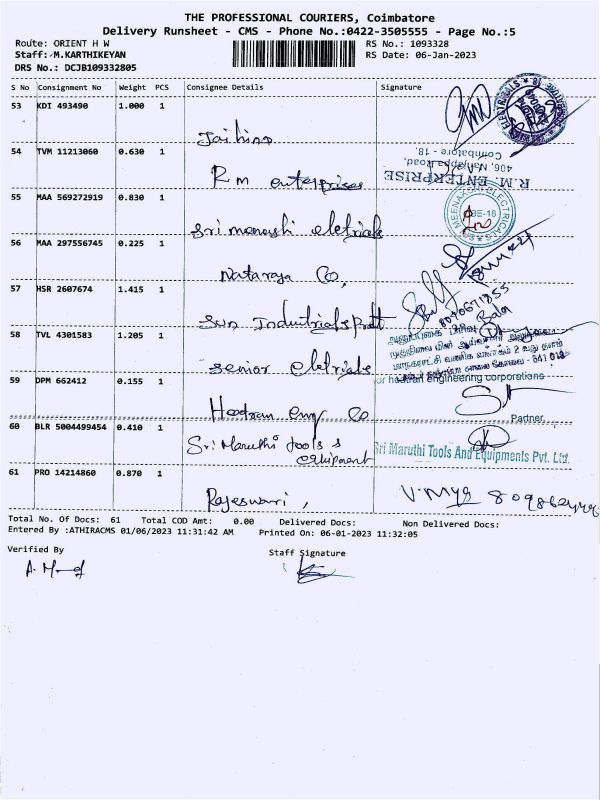 THE PROFESSIONAL COURIERS, Coimbatore
Delivery Runsheet - CMS - Phone No.:0422-3505555 - Page No.:5
Route: ORIENT H W
RS No.: 1093328
Staff: M.KARTHIKEYAN
RS Date: 06-Jan-2023
DRS No.: DCJB109332805
S No Consignment No Weight PCS Consignee Details Signature
53 KDI 493490 1.000 1
Jai hind
54 TVM 11213060 0.630 1
Rm enterprises
R.M. ENTERPRISE
406, Nanjappa Road,
Coimbatore - 18.
55 MAA 569272919 0.830 1
Sri menakshi eletricals
SRI MEENAKSHI ELECTRICALS
CBE-18
56 MAA 297556745 0.225 1
Nataraja Co,
57 HSR 2607674 1.415 1
Sun Industrials
58 TVL 4301583 1.205 1
senior
59 DPM 662412 0.155 1
engineering corporations
Partner
60 BLR 5004499454 0.410 1
Sri Maruthi tools &
equipment
Sri Maruthi Tools And Equipments Pvt. Ltd.
61 PRO 14214860 0.870 1
Rajeswari,
Total No. Of Docs: 61 Total COD Amt: 0.00 Delivered Docs: Non Delivered Docs:
Entered By :ATHIRACMS 01/06/2023 11:31:42 AM Printed On: 06-01-2023 11:32:05
Verified By Staff Signature